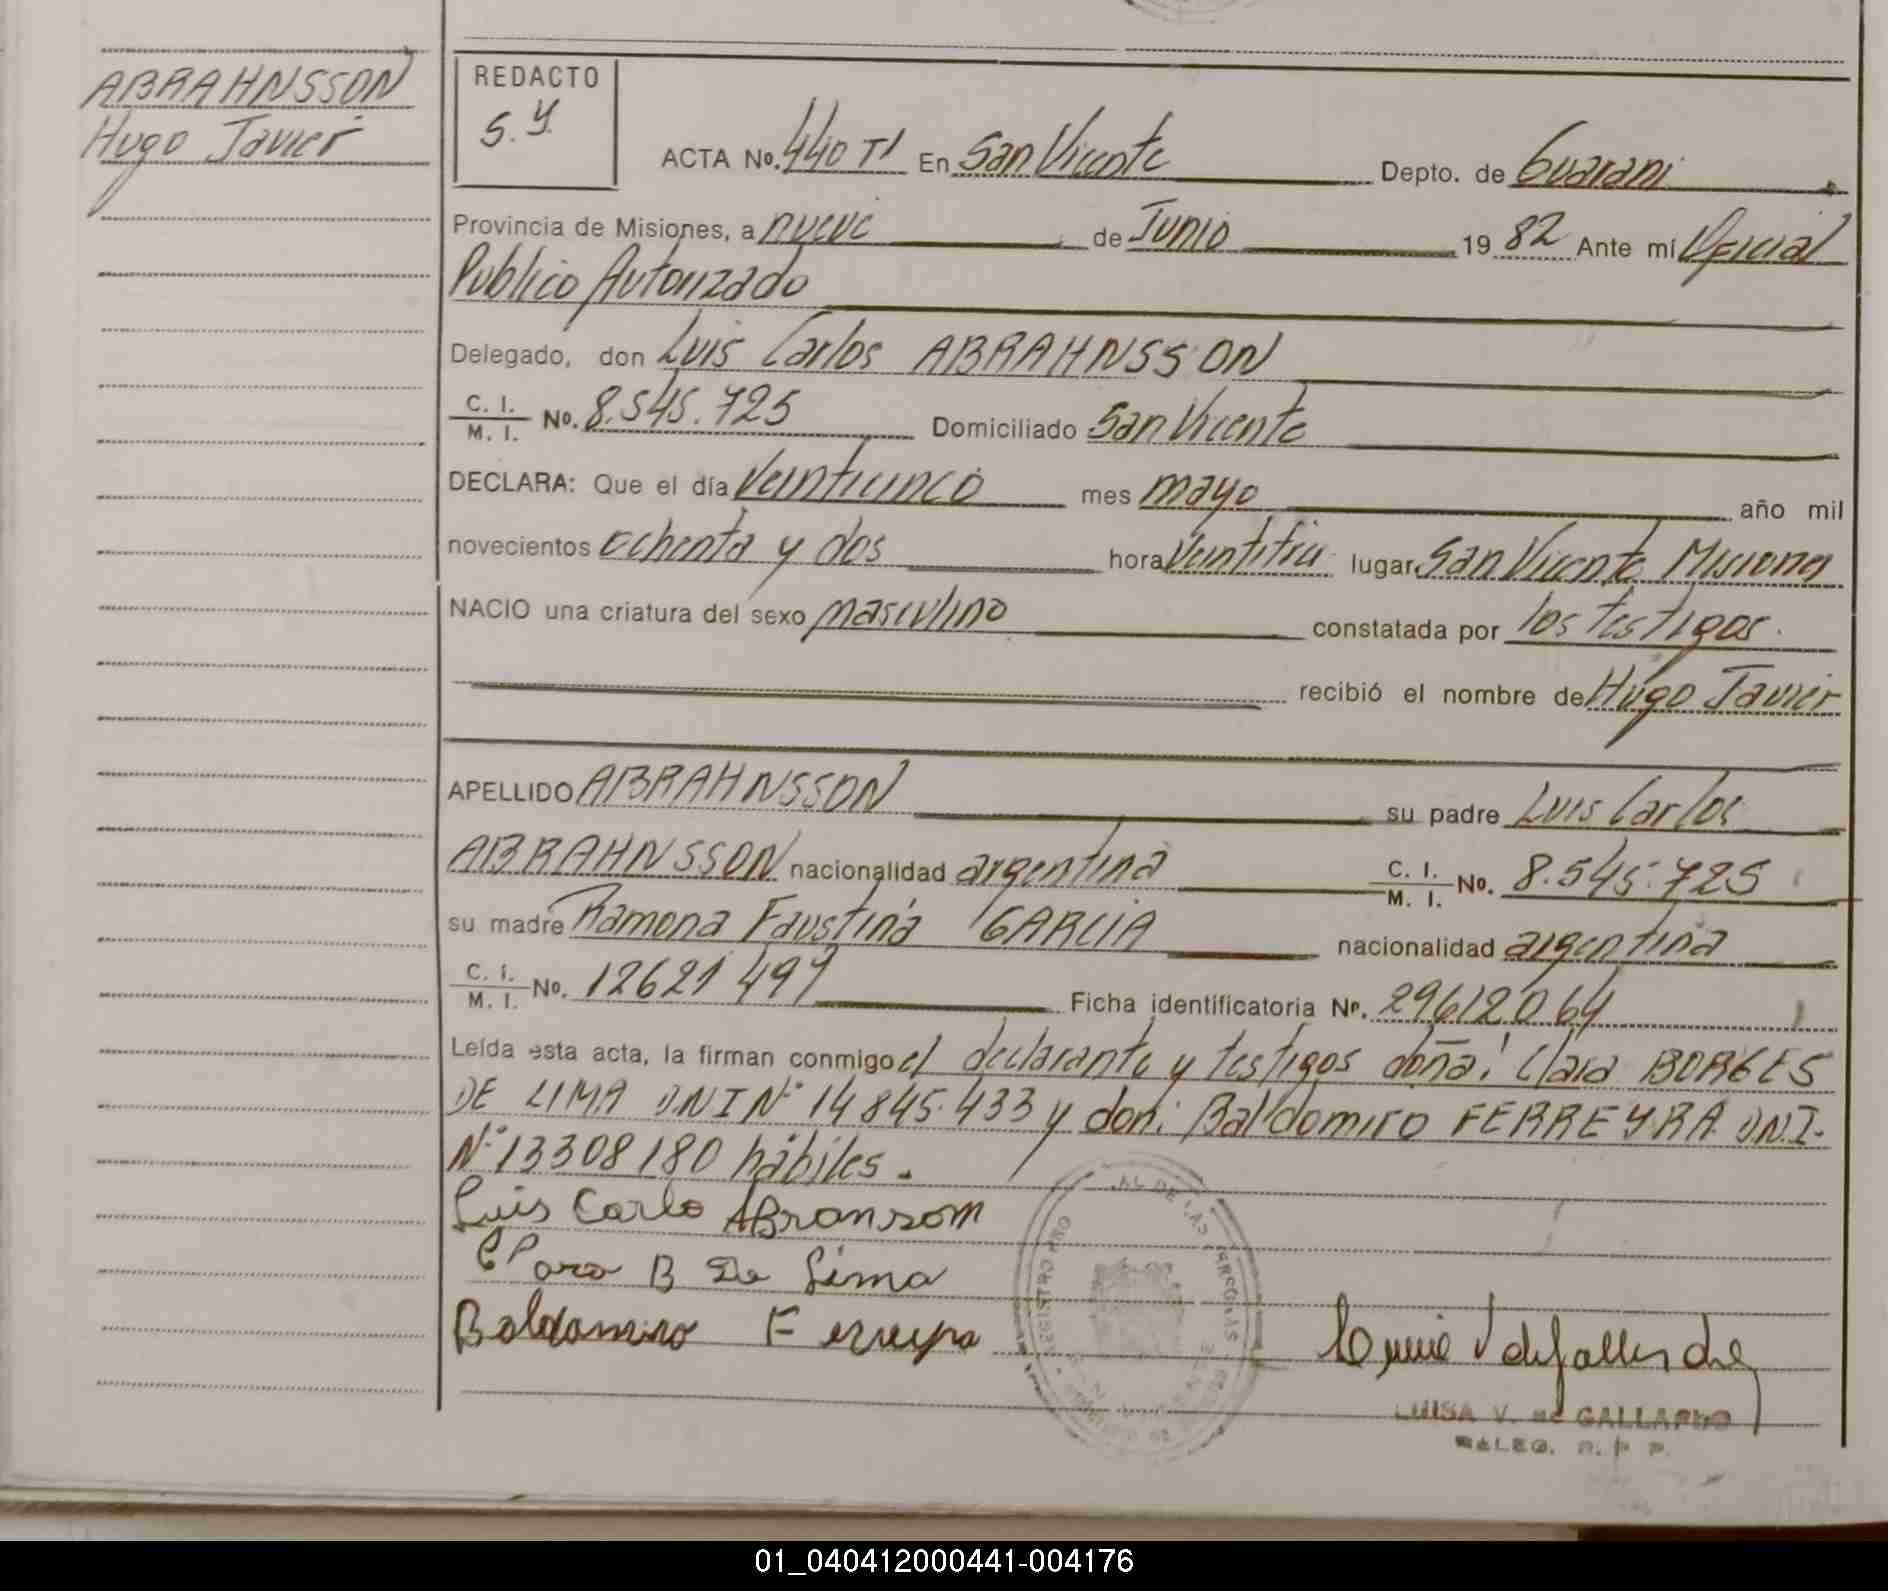 ABRAHNSSON
Hugo Javier
REDACTO
S.Y.
ACTA No. 440 TI En San Vicente Depto. de Guarani
Provincia de Misiones, a nueve de Junio 19 82 Ante mí Oficial
Publico Autorizado
Delegado, don Luis Carlos ABRAHNSSON
C. I. M. I. No. 8.545.725 Domiciliado San Vicente
DECLARA: Que el día Veinticinco mes mayo año mil
novecientos ochenta y dos hora Veintitres lugar San Vicente Misiones
NACIO una criatura del sexo masculino constatada por los testigos.
recibió el nombre de Hugo Javier
APELLIDO ABRAHNSSON su padre Luis Carlos
ABRAHNSSON nacionalidad argentina C. I. M. I. No. 8.545.725
su madre Ramona Faustina GARCIA nacionalidad argentina
C. I. M. I. No. 12621 497 Ficha identificatoria No. 29612064
Leída esta acta, la firman conmigo el declarante y testigos doña: Clara BORGES
DE LIMA D.N.I Nº 14845.433 y don: Baldomiro FERREYRA D.N.I.
Nº 13308180 hábiles.
Luis Carlo ABransom
Clara B De Lima
Baldomiro Ferreyra
LUISA V. de GALLARDO
DELEG. R. P. P.
01_040412000441-004176